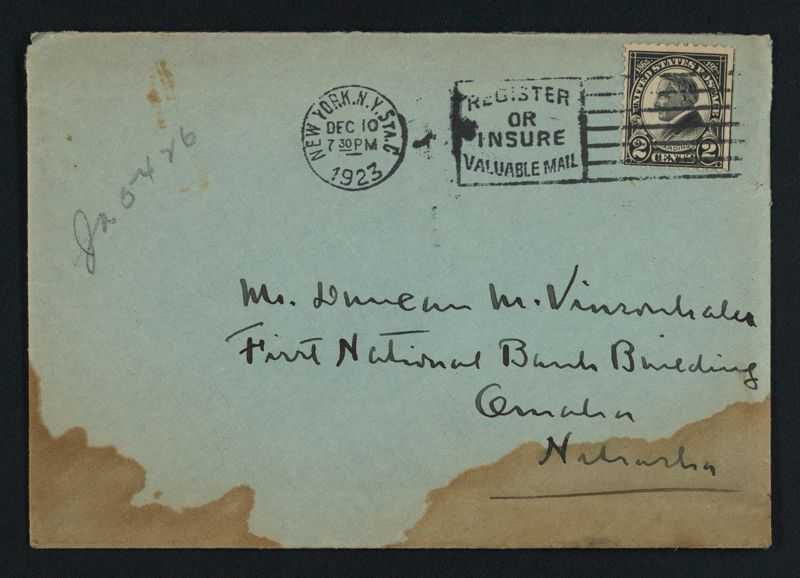 NEW YORK, N.Y. STA. C
DEC 10
7 30 PM
1923
REGISTER
OR
INSURE
VALUABLE MAIL
UNITED STATES POSTAGE
1865 1923
HARDING
2 CENTS 2
Ja 5426
Mr. Duncan M. Vinsonhaler
First National Bank Building
Omaha
Nebraska